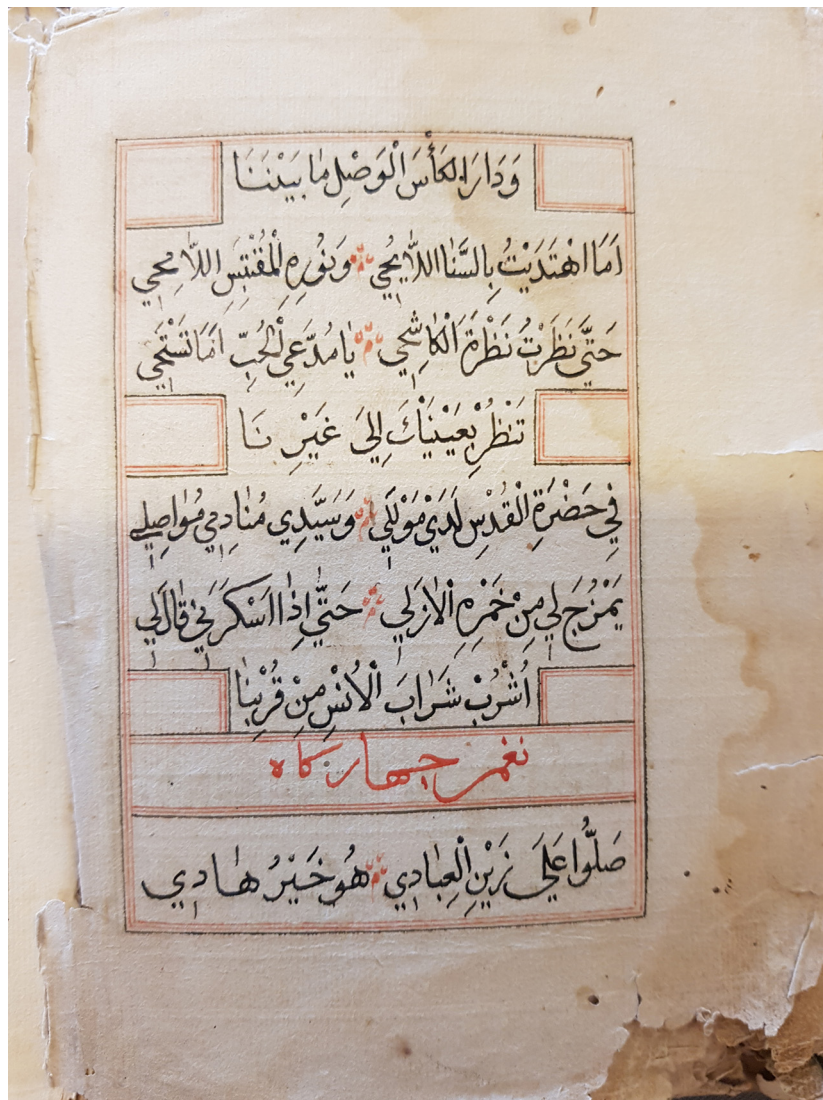 وَدَارَ الكَأْسَ الْوَصْلِ مٰا بَيْنَنَا
اَمَا اهْتَدَيْتُ بِالسَّنٰا اللّٰايُحِي وَنُوْرِهِ الْمُقْتَبِسِ اللّٰامِحِي
حَتّٰي نَظَرْتُ نَظْرَةَ الْكٰاشِحِي يٰا مُدَّعِي الْحُبِّ اَمَا تَسْتَحِي
تَنْظُرْ بِعَيْنَيْكَ اِلَيٰ غَيْرِنَا
فِي حَضْرَةِ الْقُدْسِ لَدَيْ مَوْلَلِي وَسَيَّدِي مُنٰادِمِي مُوٰاصِلِي
يَمْزُجَ لِي مِنْ خَمْرِهِ الْاَزَلِي حَتّٰي اِذٰا اَسْكَرَنِي قٰالَ لِي
اُشْرُبْ شَرٰابَ الْاُنْسِ مِنْ قُرْبِنٰا
نغمر جهاركاه
صَلُّوا عَلَيٰ زَيْنِ الْعِبٰادِي هُو خَيْرُ هٰادِي